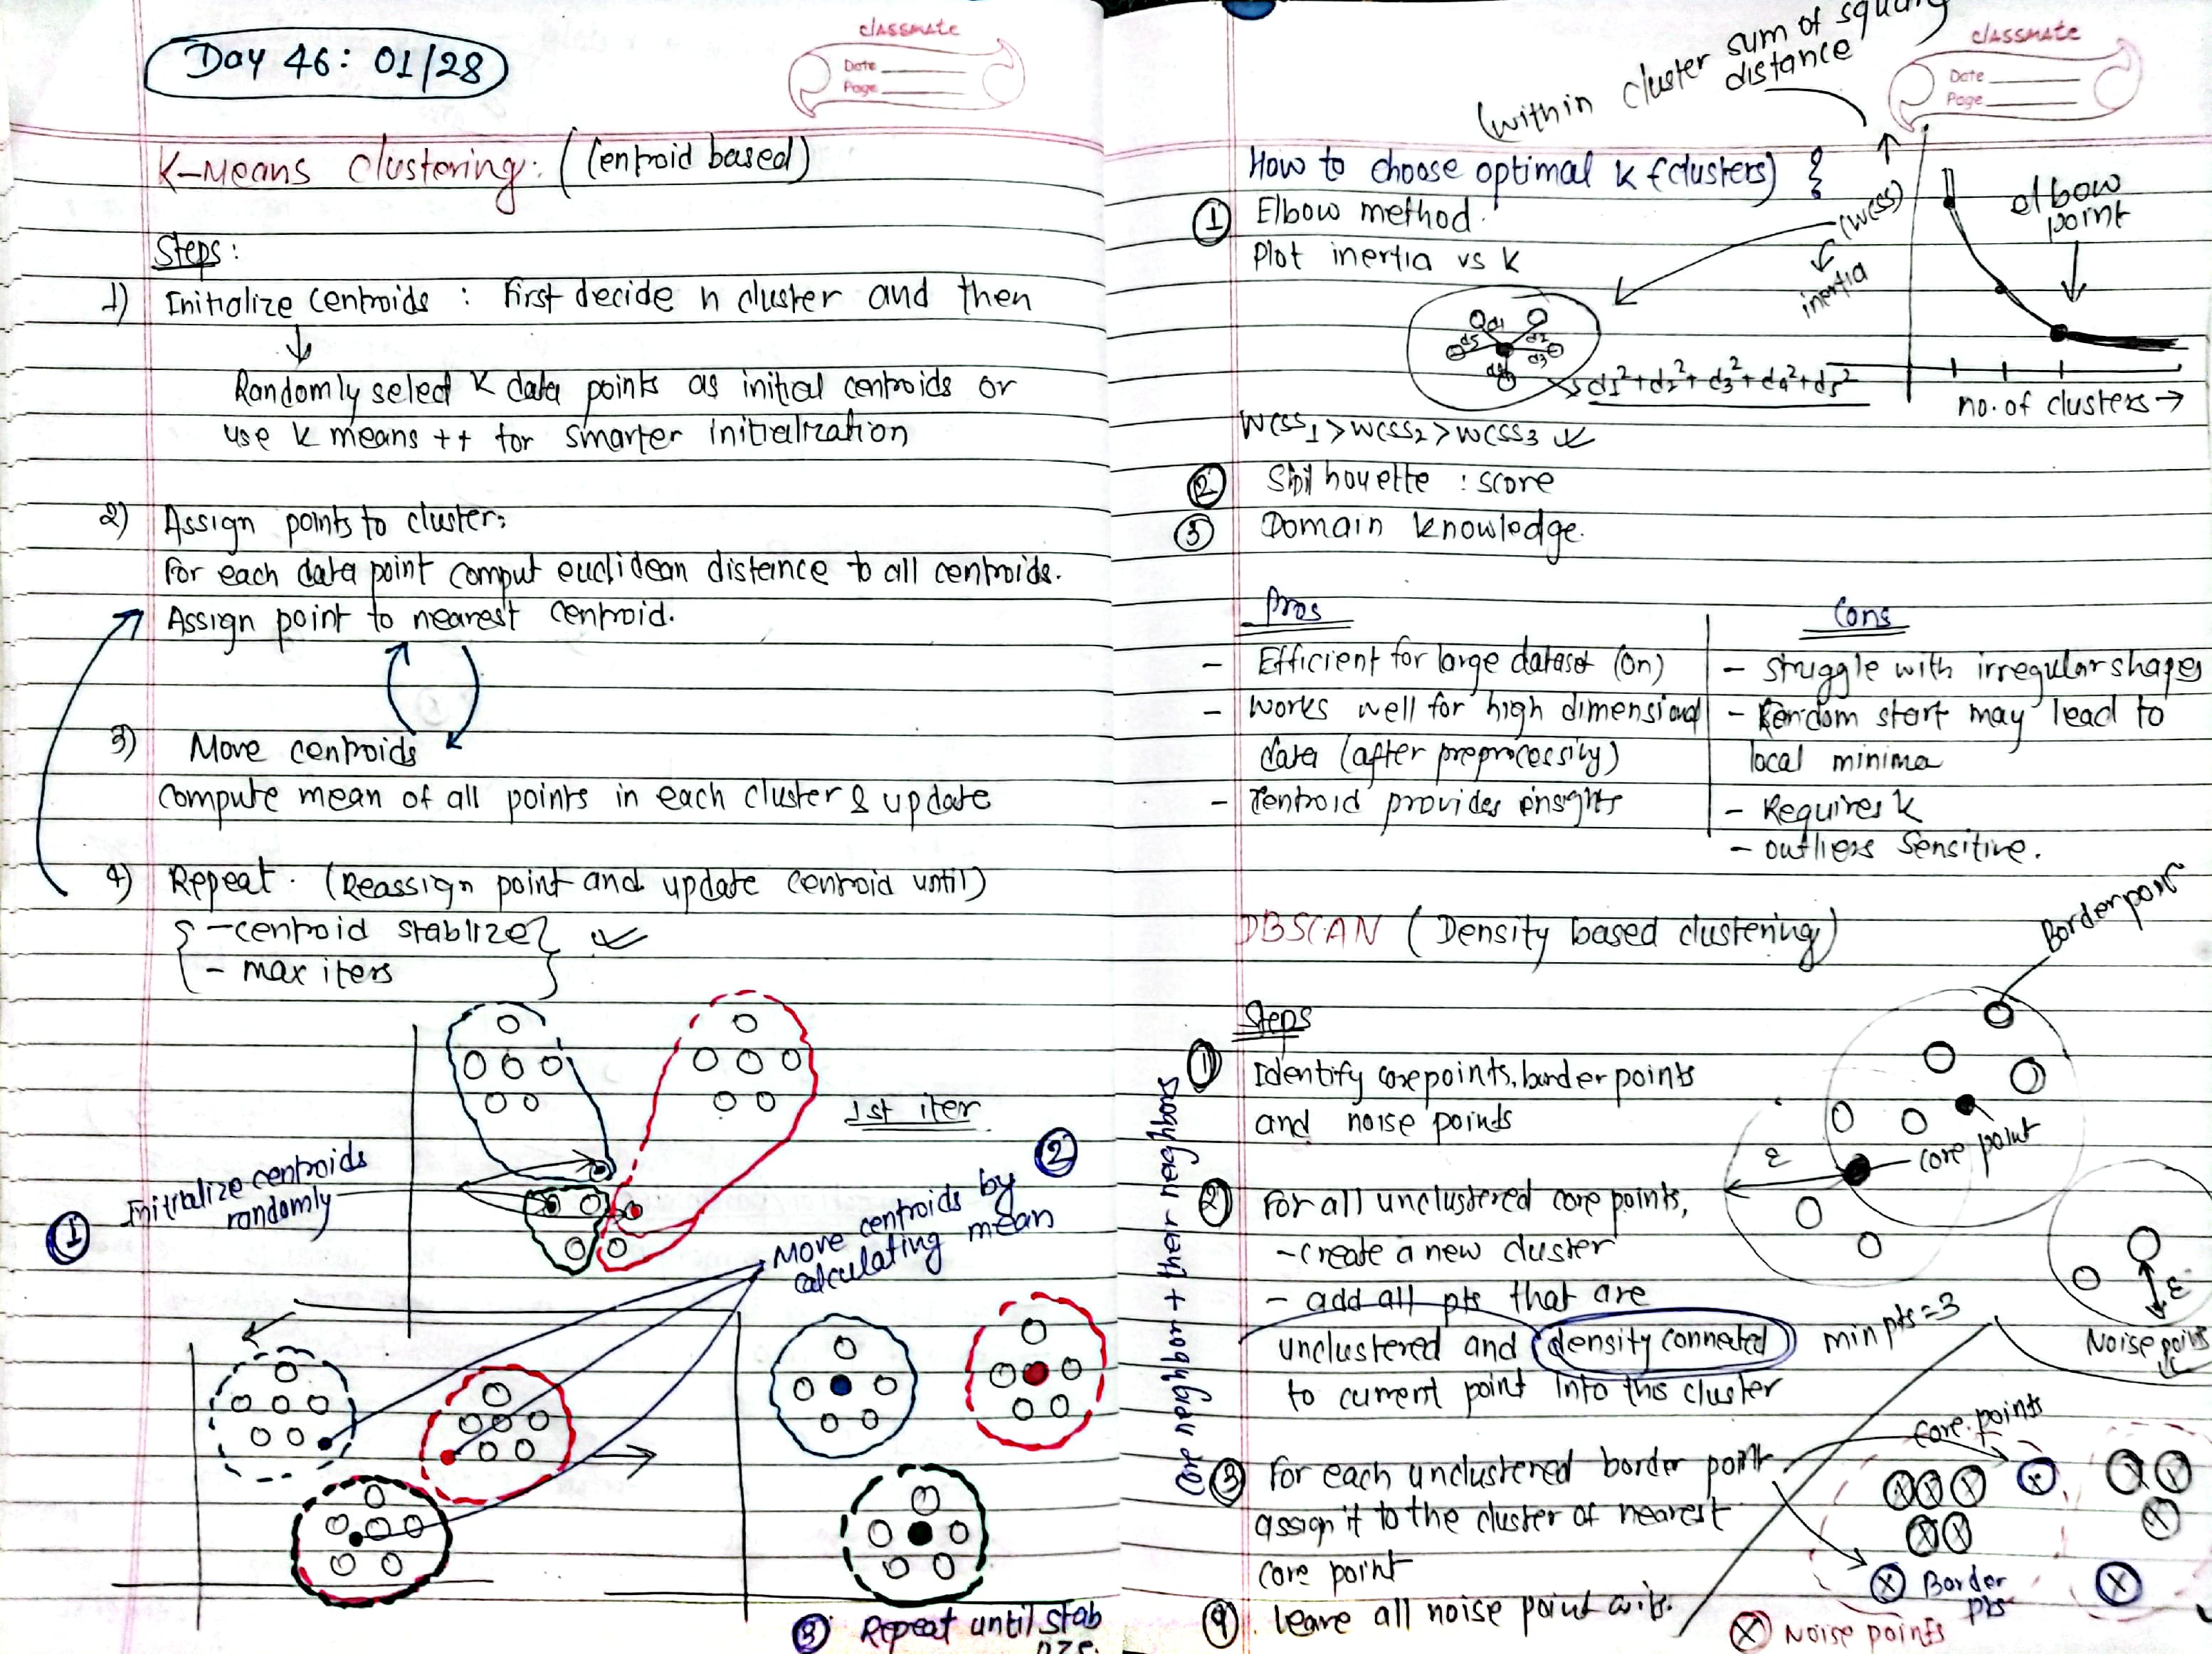 Day 46: 01/28
classmate
Date
Page
K-Means Clustering: (Centroid based)
Steps:
1) Initialize centroids : First decide n cluster and then
Randomly select K data points as initial centroids or
use k means ++ for smarter initialization
2) Assign points to cluster:
For each data point comput euclidean distance to all centroids.
Assign point to nearest centroid.
3) Move centroids
Compute mean of all points in each cluster & update
4) Repeat. (Reassign point and update centroid until)
- centroid stablize
- max iters
1st iter
① Initialize centroids
randomly
②
Move centroids by
calculating mean
③ Repeat until stab
ize.
classmate
Date
Page
(within cluster sum of square
distance
How to choose optimal k (clusters)
(WCSS)
inertia
elbow
point
no. of clusters →
① Elbow method.
Plot inertia vs K
d1 d2 d3 d4 d5
d1²+d2²+d3²+d4²+d5²
WCSS1 > WCSS2 > WCSS3
② Silhouette : score
③ Domain knowledge.
Pros
- Efficient for large dataset (On)
- Works well for high dimensional
data (after preprocessity)
- Centroid provides insights
Cons
- struggle with irregular shapes
- Random start may lead to
local minima
- Requires k
- outliers Sensitive.
DBSCAN (Density based clustering)
Border point
core point
ε
ε
Noise points
Steps
① Identify core points, border points
and noise points
② For all unclustered core points,
- create a new cluster
- add all pts that are
unclustered and density connected
to current point into this cluster
min pts = 3
(our neighbor + their neighbors
③ For each unclustered border point
assign it to the cluster of nearest
core point
④ leave all noise point
core points
Border
pts
Noise points